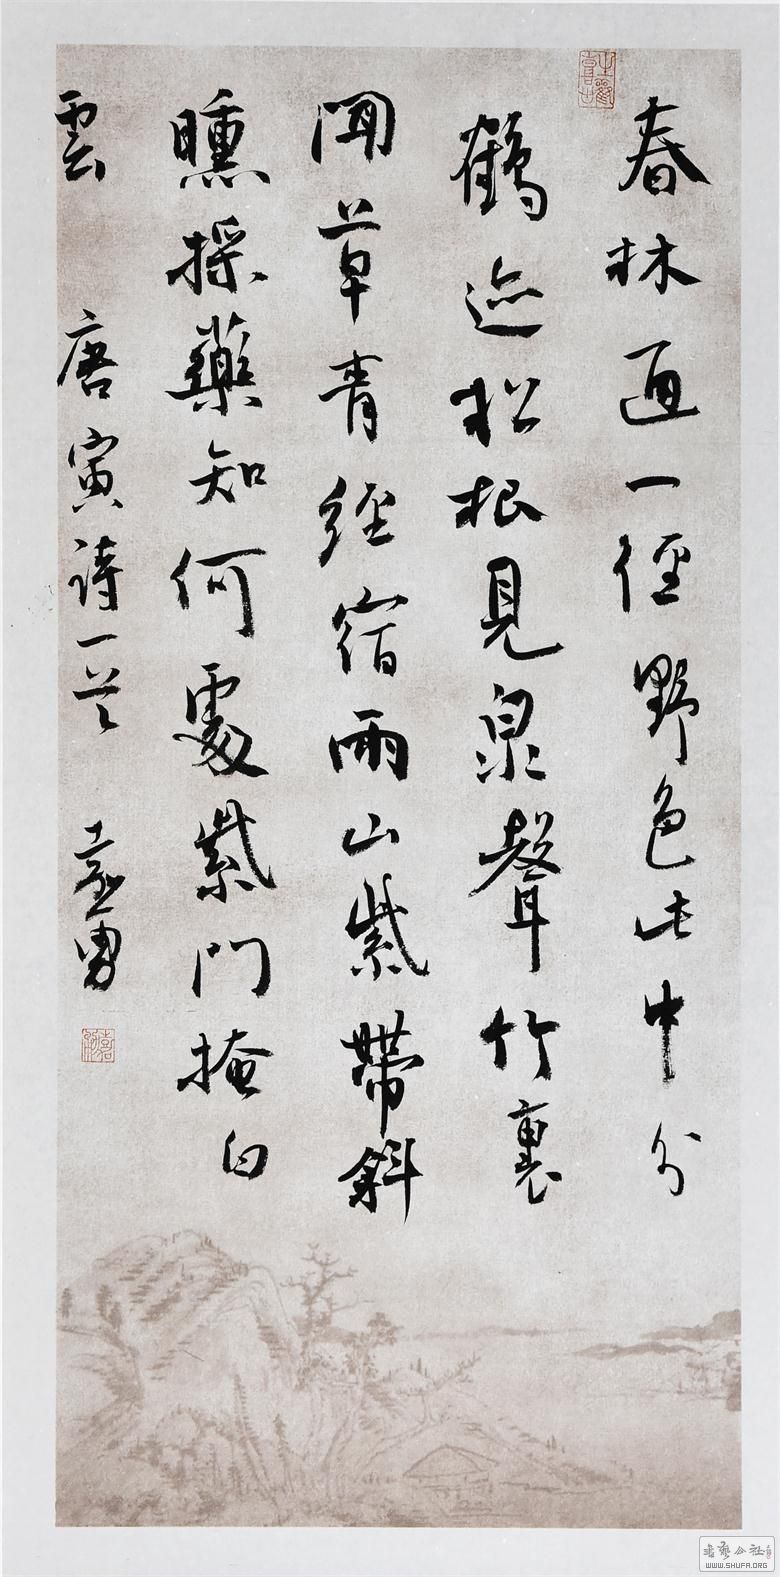 春林通一徑野色此中分
鶴迹松根見泉聲竹裏
聞草青經宿雨山紫帶斜
曛採藥知何處紫門掩白
雲 唐寅詩一首 勇
書藝公社
WWW.SHUFA.ORG